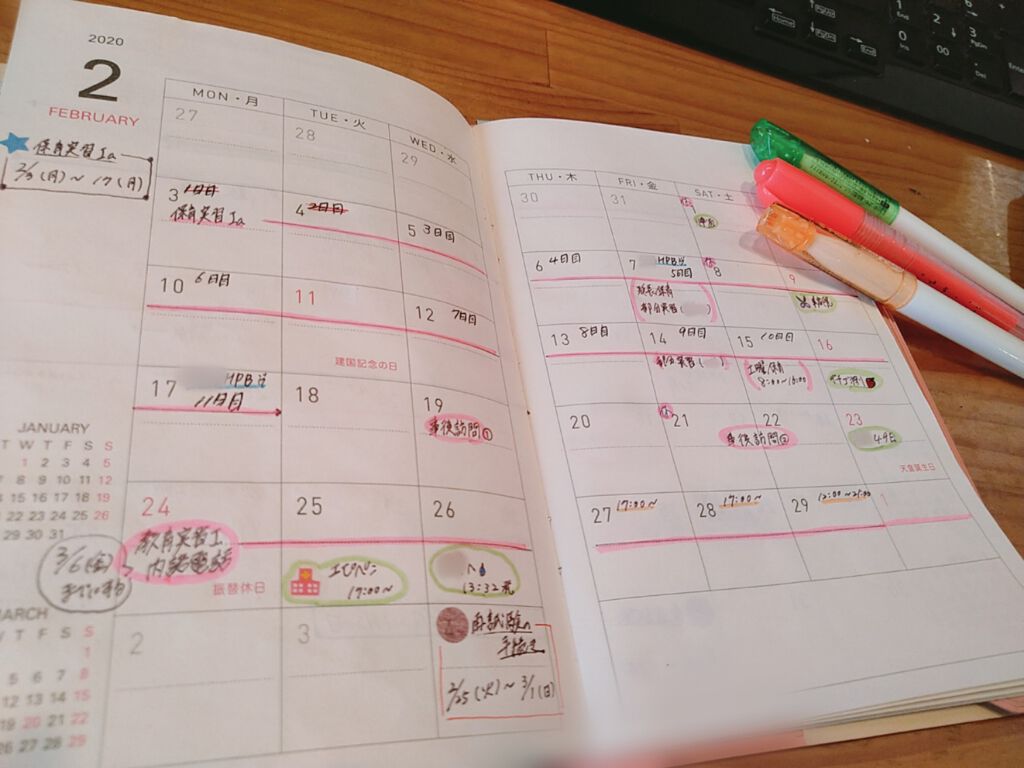 2020
2
FEBRUARY
保育実習Ia
2/3(月)~17(月)
MON・月
TUE・火
WED・水
THU・木
FRI・金
SAT・土
27
28
29
30
31
3 1日目
保育実習Ia
4 2日目
5 3日目
6 4日目
7 HPB
5日目
部分実習( )
8
9
10 6日目
11
建国記念の日
12 7日目
13 8日目
14 9日目
部分実習( )
15 10日目
土曜保育
8:00~16:00
16
17 HPB
11日目
18
19
事後訪問①
20
21
22
事後訪問②
23
49日
天皇誕生日
24
教育実習I
内諾電話
振替休日
3/6(金)
25
エピペン
17:00~
26
へ
13:32発
27 17:00~
28 17:00~
29 12:00~21:00
1
2
3
再試験の
手続き
2/25(火)~3/1(日)
JANUARY
T W T F S S
1 2 3 4 5
7 8 9 10 11 12
14 15 16 17 18 19
22 23 24 25 26
29 30 31
MARCH
T W T F S S
1
5 6 7 8
12 13 14 15
19 20 21 22
26 27 28 29